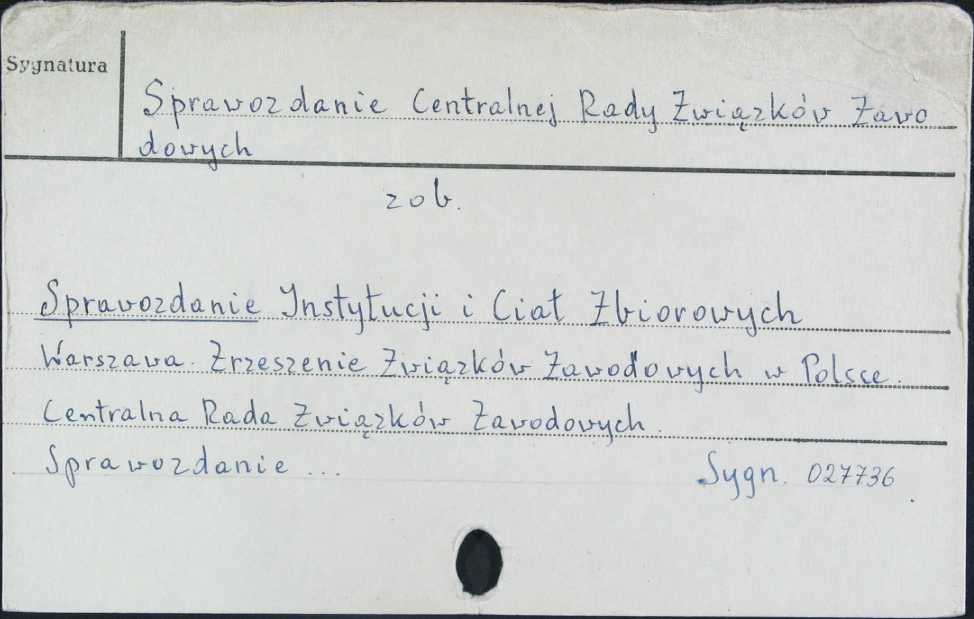 Sygnatura
Sprawozdanie Centralnej Rady Związków Zawo
dowych
zob.
Sprawozdanie Instytucji i Ciał Zbiorowych
Warszawa. Zrzeszenie Związków Zawodowych w Polsce.
Centralna Rada Związków Zawodowych.
Sprawozdanie ... Sygn. 027736